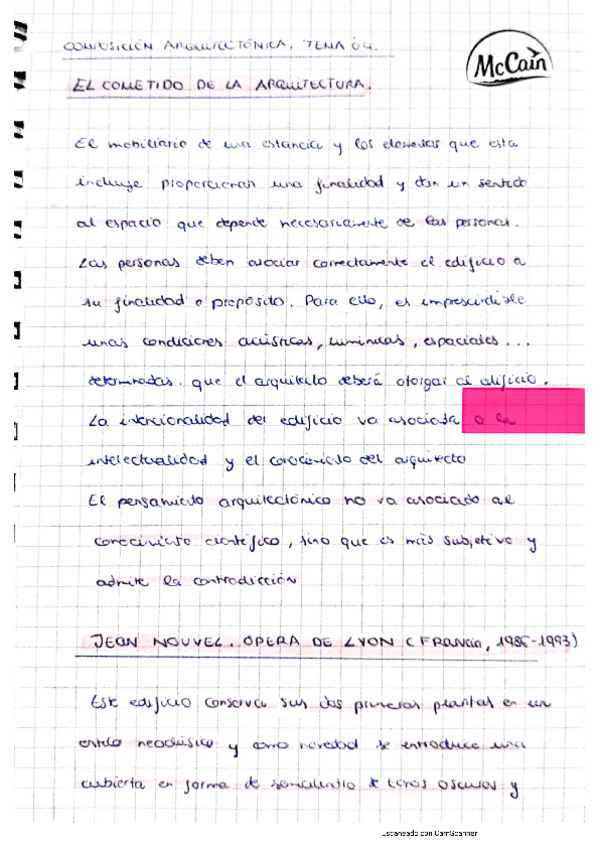 COMPOSICIÓN ARQUITECTÓNICA. TEMA 04.
McCain
EL COMETIDO DE LA ARQUITECTURA.
El mobiliario de una estancia y los elementos que esta
incluye proporcionan una finalidad y dan un sentido
al espacio que depende necesariamente de las personas.
Las personas deben asociar correctamente el edificio a
su finalidad o propósito. Para ello, es imprescindible
unas condiciones acústicas, lumínicas, espaciales...
determinadas. que el arquitecto deberá otorgar al edificio.
La intencionalidad del edificio va asociada a la
intelectualidad y el conocimiento del arquitecto
El pensamiento arquitectónico no va asociado al
conocimiento científico, sino que es más subjetivo y
admite la contradicción
JEAN NOUVEL. OPERA DE LYON (FRANCIA, 1986-1993)
Este edificio conserva sus dos primeras plantas en un
estilo neoclásico y como novedad se introduce una
cubierta en forma de semicilindro de tonos oscuros y
Escaneado con CamScanner